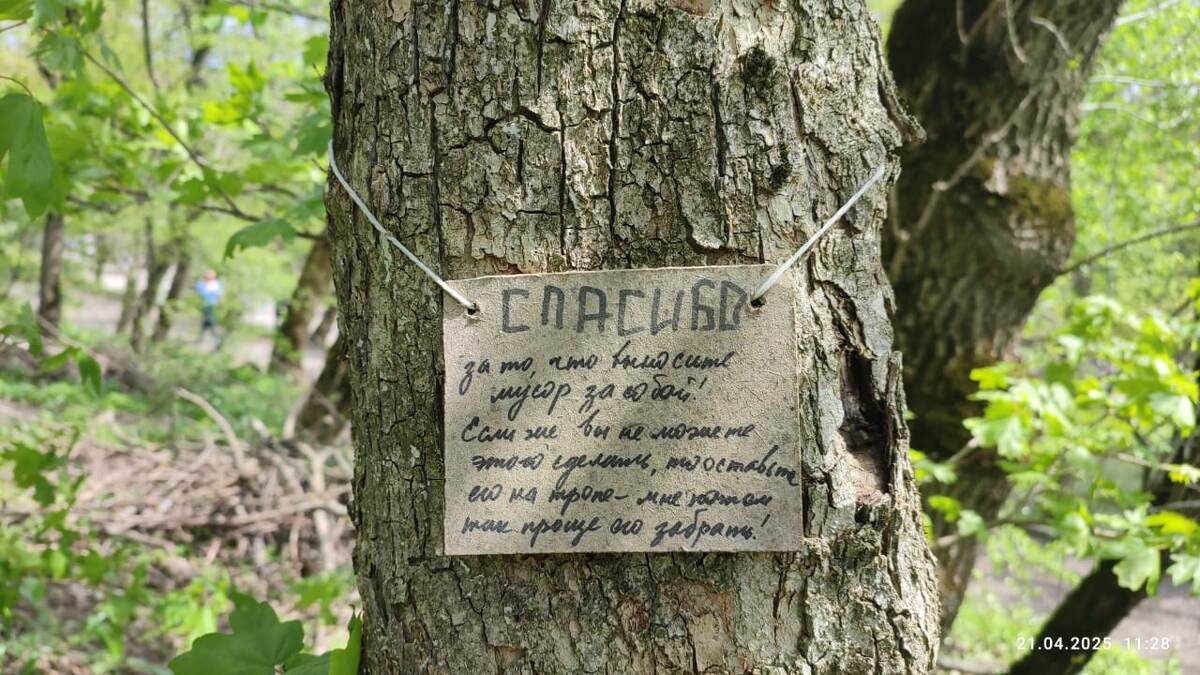 СПАСИБО
за то, что выносите
мусор за собой!
Если же вы не можете
этого сделать, то оставьте
его на тропе - мне потом
так проще его забрать!
21.04.2025 11:28